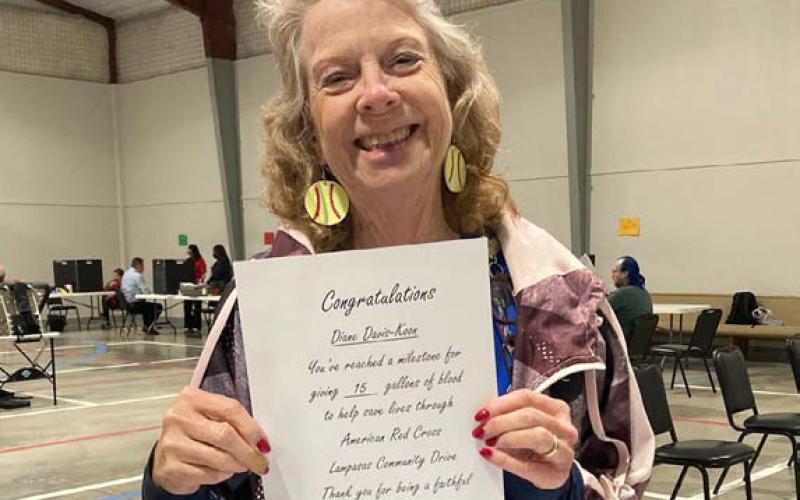 Congratulations
Diane Davis-Koon
You've reached a milestone for
giving 15 gallons of blood
to help save lives through
American Red Cross
Lampasas Community Drive
Thank you for being a faithful